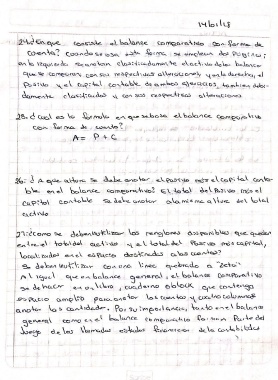 14/01/18
24.-¿en que consiste el balance comparativo con forma de
cuenta? Cuando se usa esta forma, se emplean dos páginas;
en la izquierda se anotan clasificadamente el activo de los balances
que se comparan con sus respectivas alteraciones, y en la derecha, el
pasivo y el capital contable de ambos ejercicios, también debi-
damente clasificados y con sus respectivas alteraciones
25.-¿cual es la formula en que se basa el balance comparativo
con forma de cuenta?
A = P + C
26.-¿A que altura se debe anotar el pasivo mas el capital conta-
ble en el balance comparativo? El total del Pasivo mas el
capital contable se debe anotar a la misma altura del total
activo
27.-¿como se deben utilizar los renglones disponibles que quedan
entre el total del activo y el total del Pasivo mas capital,
localizados en el espacio destinados a las cuentas?
Se deben utilizar con una linea quebrada o "zeta"
Al igual que en balance general, el balance comparativo
se debe hacer en un libro, cuaderno o block que contenga
espacio amplio para anotar las cuentas y cuatro columnas
anotar las cantidades. Por su importancia, tanto en el balance
general como en el balance comparativo forman Parte del
Juego de los llamados estados financieros de la contabilidad